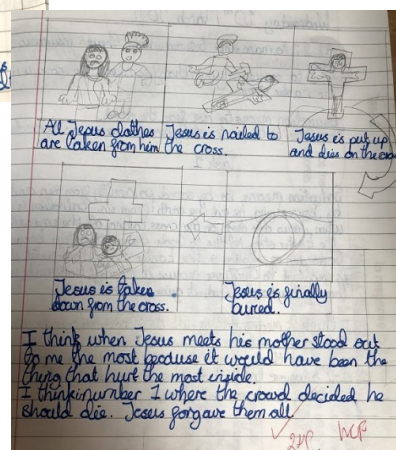 All Jesus clothes
are taken from him
Jesus is nailed to
the cross.
Jesus is put up
and dies on the
Jesus is taken
down from the cross.
Jesus is finally
buried.
I think when Jesus meets his mother stood out
to me the most because it would have been the
thing that hurt the most inside.
I think number 1 where the crowd decided he
should die. Jesus forgave them all